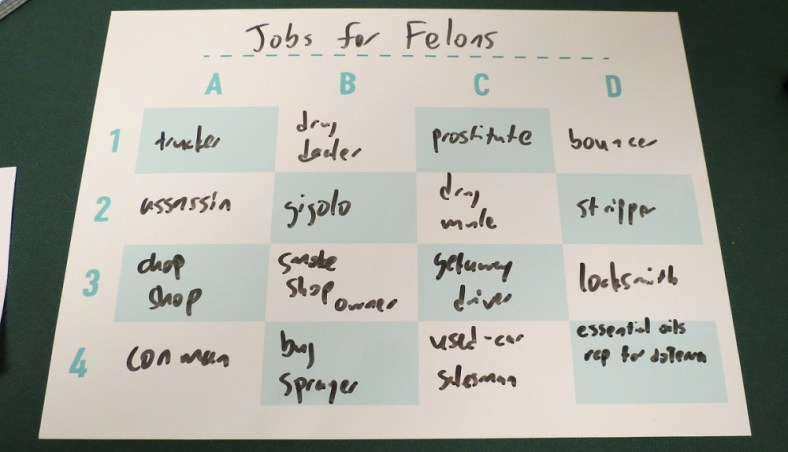 Jobs for Felons
A B C D
1 trucker drug dealer prostitute bouncer
2 assassin gigolo drug mule stripper
3 chop shop smoke shop owner getaway driver locksmith
4 con man bug sprayer used-car salesman essential oils rep for doTerra